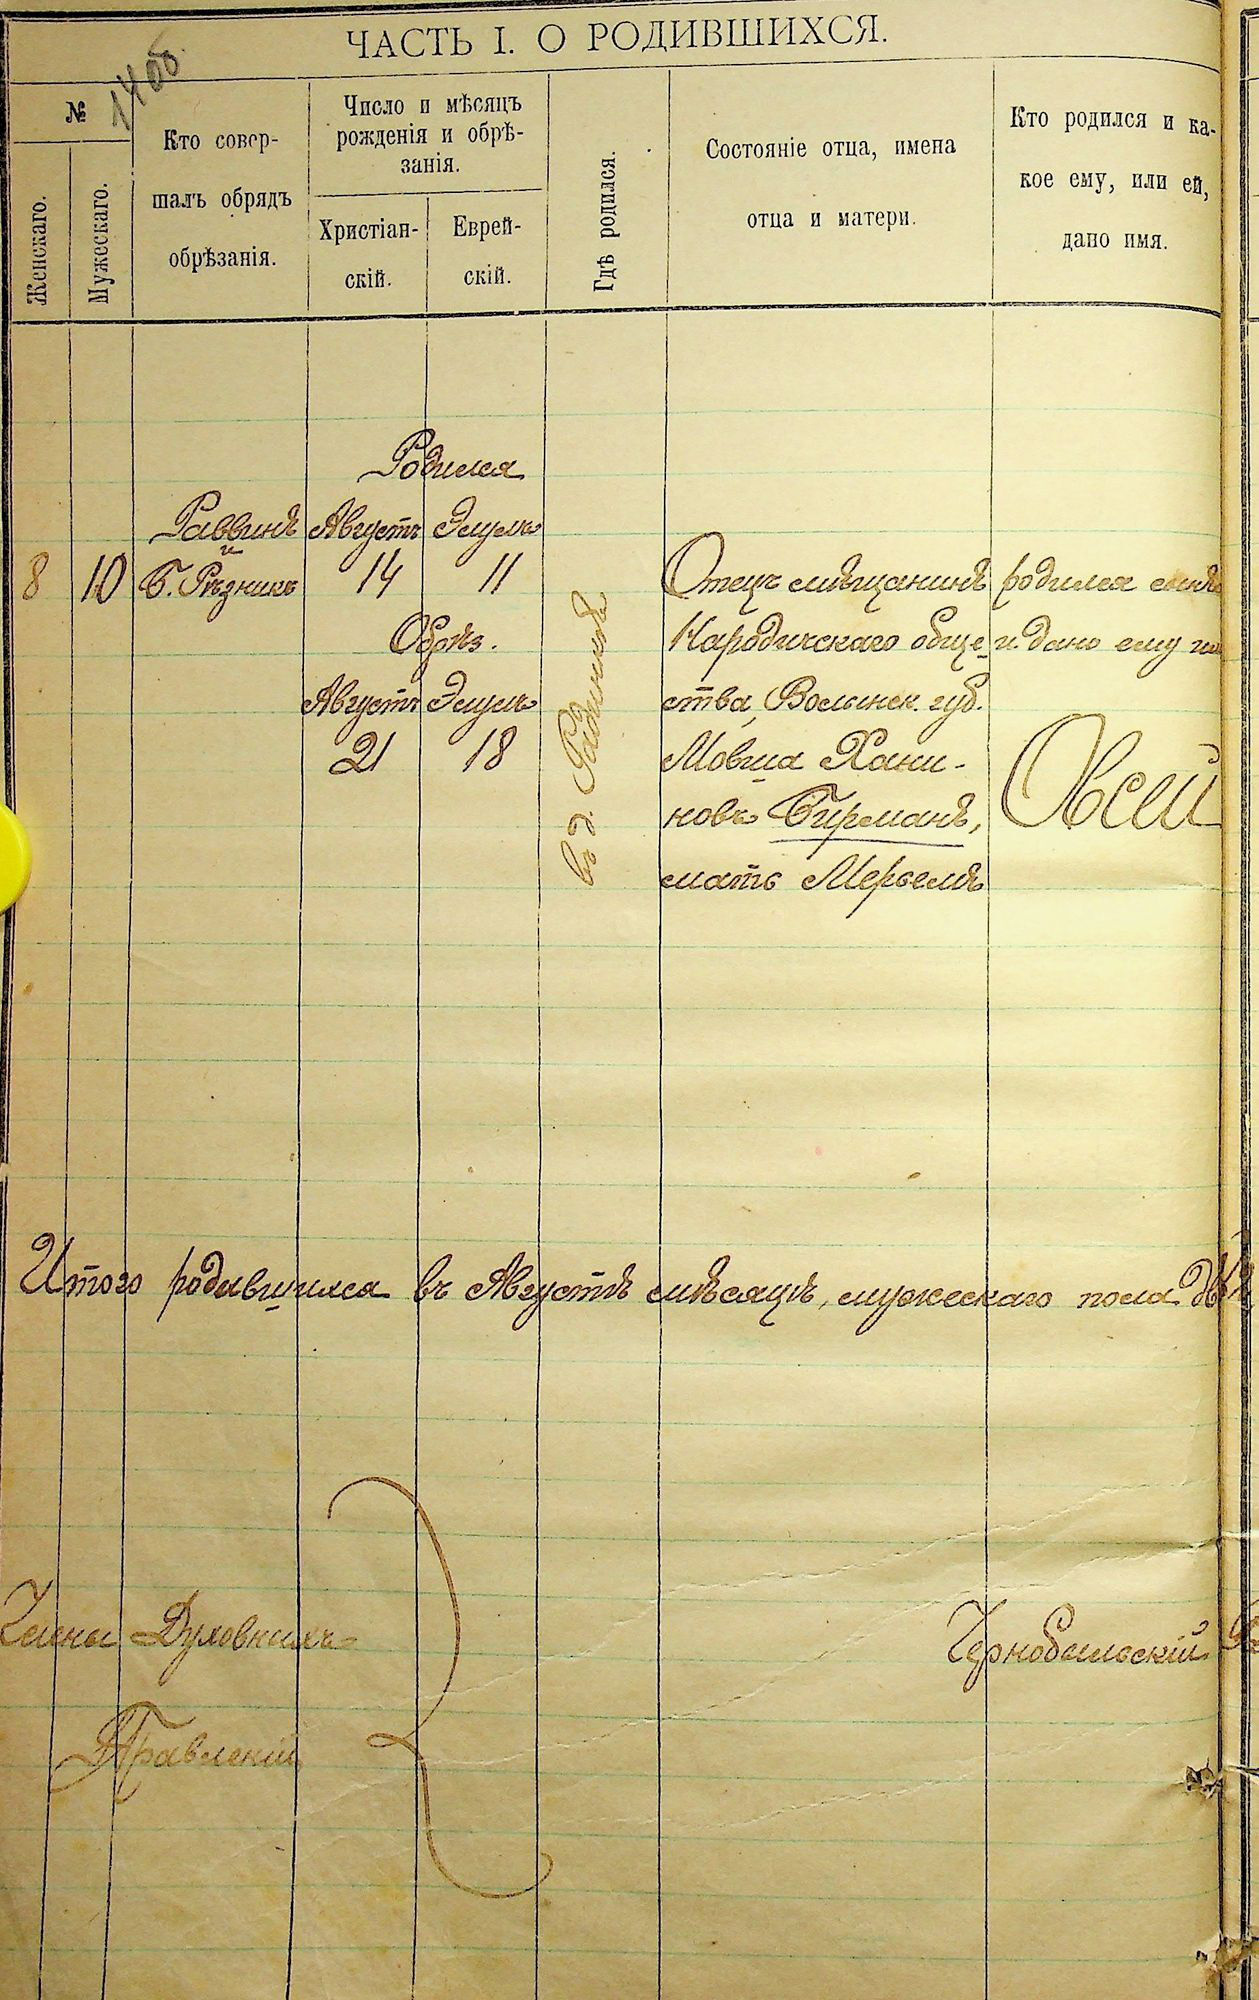 ЧАСТЬ I. О РОДИВШИХСЯ.
14об
№
Женскаго.
Мужескаго.
Кто совер-
шалъ обрядъ
обрѣзанія.
Число и мѣсяцъ
рожденія и обрѣ-
занія.
Христіан-
скій.
Еврей-
скій.
Гдѣ родился.
Состояніе отца, имена
отца и матери.
Кто родился и ка-
кое ему, или ей,
дано имя.
Родился
Раввинъ Августъ Элулъ
и
8 10 Б. Рѣзникъ 14 11
Обрѣз.
Августъ Элулъ
21 18
въ д. Радинкѣ
Отецъ мѣщанинъ
Народичскаго обще-
ства, Волынск. губ.
Мовша Хаии-
новъ Бирманъ,
мать Мерьемъ
родился сынъ
и дано ему
Овсей
Итого родившихся въ Августѣ мѣсяцѣ, мужескаго пола
Члены Духовныхъ
Правленій
Чернобыльскій